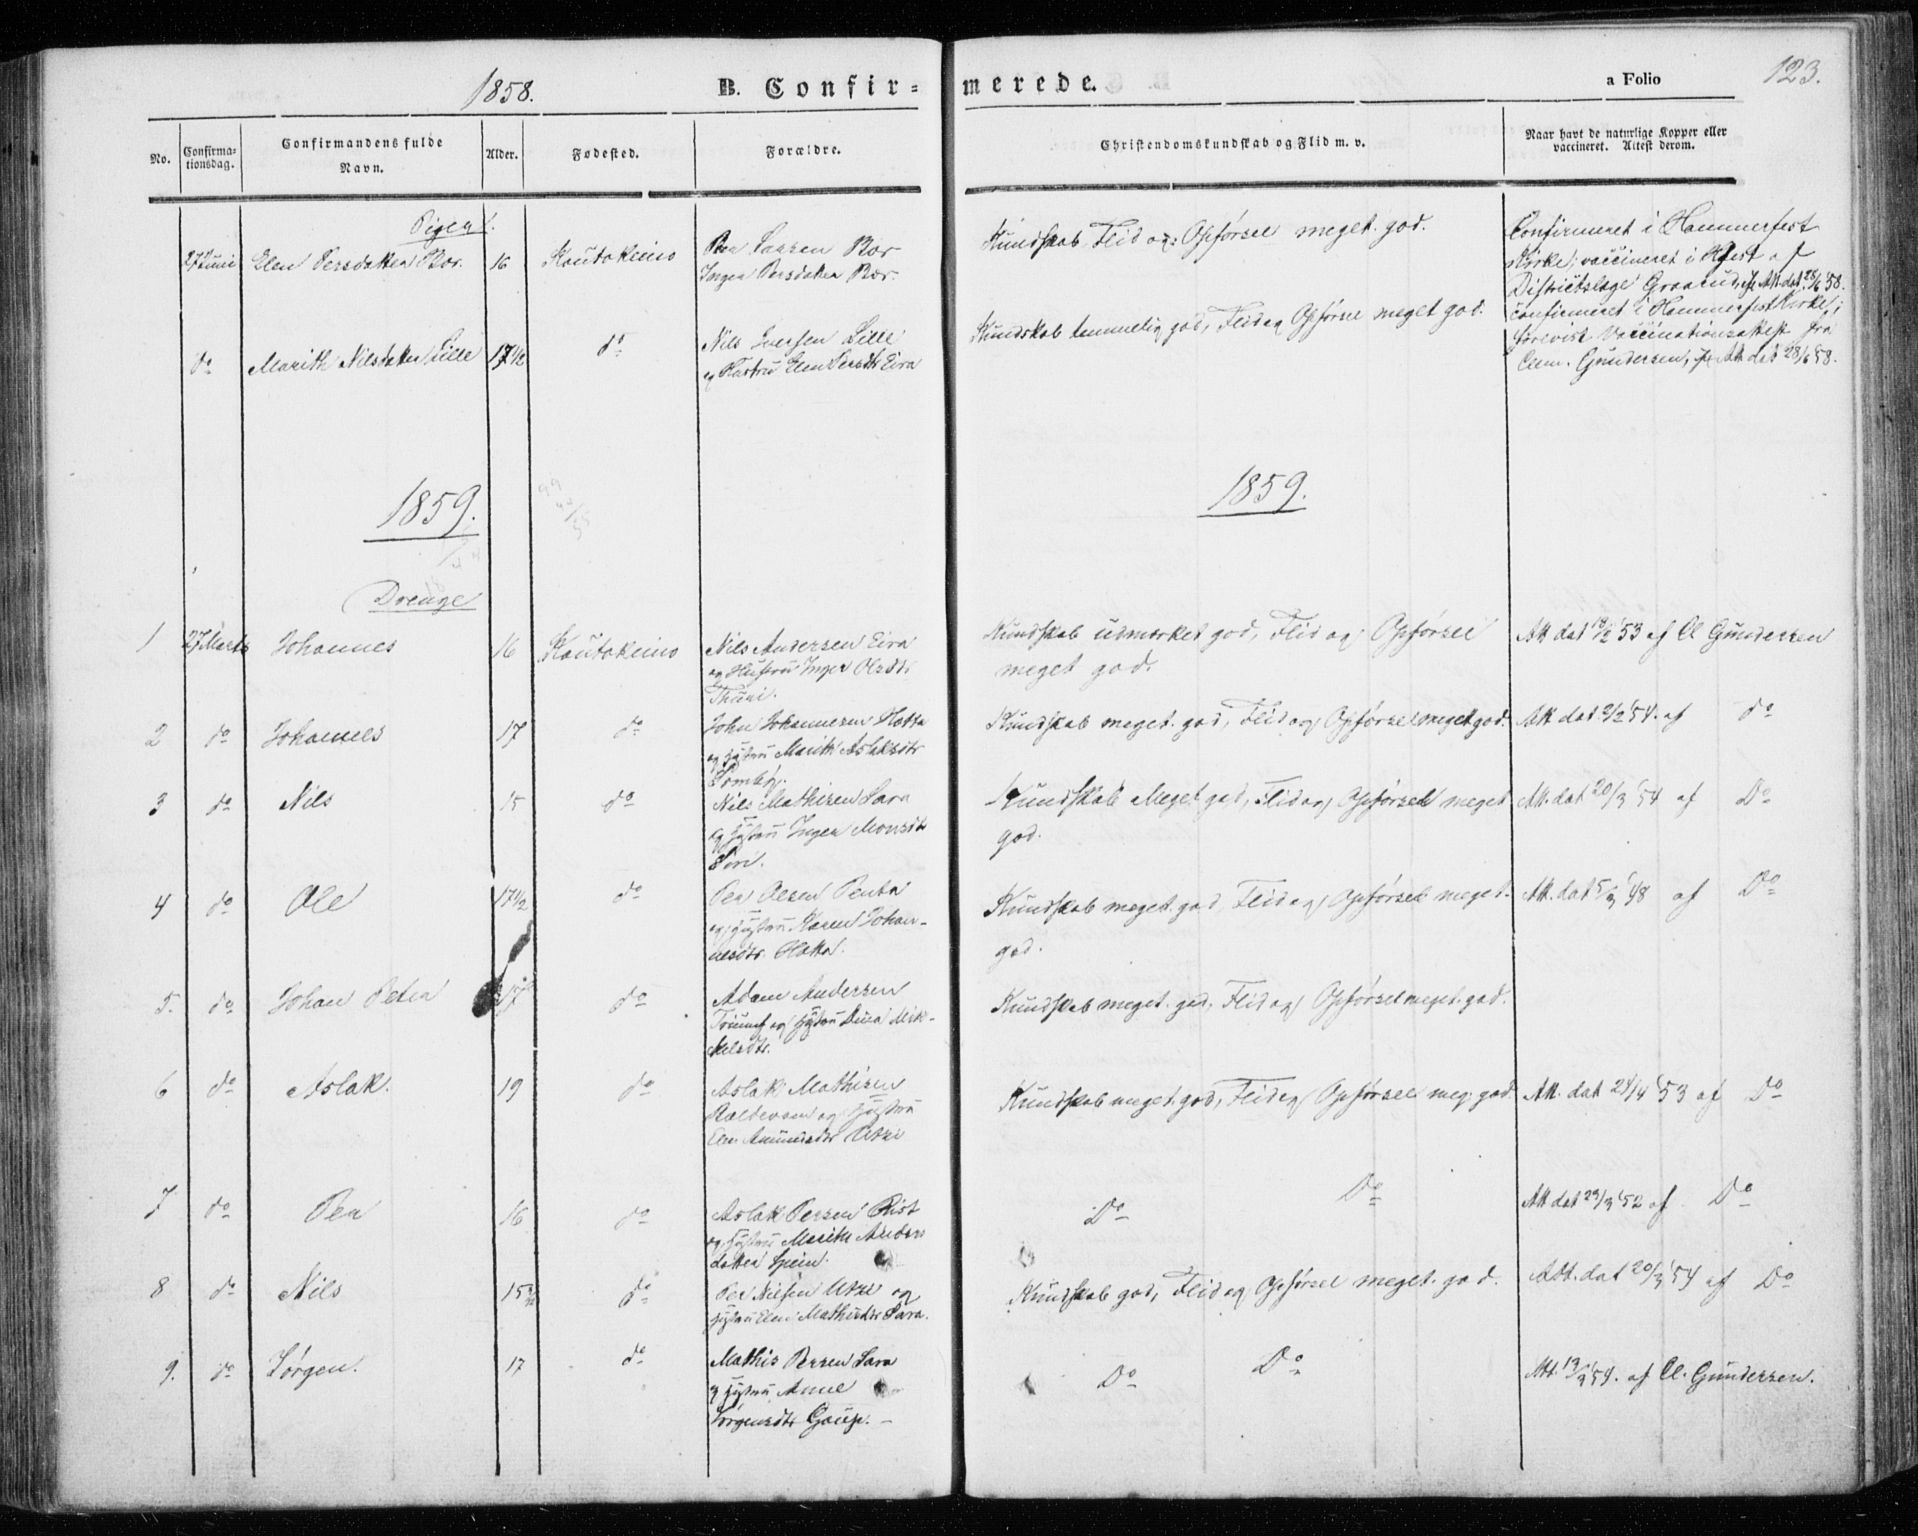 1858.
B. Confir-
merede.
a Folio
123.
No.
Confirma-
tionsdag.
Confirmandens fulde
Navn.
Alder.
Fødested.
Forældre.
Christendomskundskab og Flid m. v.
Naar havt de naturlige Kopper eller
vaccineret. Attest derom.
Piger.
27 Juni Elen Persdatter Bær. 16 Kautokeino
Per Larsen Bær
Inger Persdatter Bær.
Kundskab, Flid og Opførsel meget god.
Confirmeret i Hammerfest
Kirke; vaccineret i Hfest af
Districtslæge Graarud, Att. dat. 28/6 58.
do Marith Nilsdatter Lille 17 1/2 do
Nils Iversen Lille
og Hustru Elen Persdtr Eira
Kundskab temmelig god, Flid og Opførsel meget god.
confirmeret i Hammerfest Kirke;
Vaccinationsattest fra
Clem. Gundersen, Att. dat 28/6 58.
1859.
1859.
Drenge
1 27 Marts Johannes 16 Kautokeino
Nils Andersen Eira
og Hustru Inger Olsdtr
Thuri.
Kundskab udmærket god, Flid og Opførsel
meget god.
Att dat 18/2 53 af Cl Gundersen
2 do Johannes 17 do
John Johannesen Hætta
og Hustru Marith Aslaksdtr
Somby.
Kundskab meget god, Flid og Opførsel meget god.
Att dat 2/2 54. af do
3 do Nils 15 do
Nils Mathisen Sara
og Hustru Inger Monsdtr
Siri.
Kundskab Meget god, Flid og Opførsel meget
god.
Att. dat 20/3 54 af Do
4 do Ole 17 1/2 do
Per Olsen Penta
og Hustru Karen Johan-
nesdtr. Hætta.
Kundskab meget god, Flid og Opførsel meget
god.
Att. dat 5/3 48 af Do
5. do Johan Peter 17 do
Adam Andersen
Triumf og Hustru Mik-
kelsdtr.
Kundskab meget god, Flid og Opførsel meget god.
6 do Aslak. 19 do
Aslak Mathisen
og Hustru
Elen Ammundsdtr Utzi
Kundskab meget god, Flid og Opførsel meg. god.
Att. dat 24/4 53 af Do
7 do Per 16 do
Aslak Persen Rist
og Hustru Marith Anders
datter Spein.
Do Do
Att dat 29/3 52 af Do
8 do Nils 15 do
Per Nilsen Utzi og
Hustru Elen Mathisdtr Sara.
Kundskab god, Flid og Opførsel meget god.
Att. dat 20/3 54 af Do
9. do Jørgen. 17 do
Mathis Persen Sara
og Hustru Anne
Jørgensdtr Gaup.
Do Do
Att. 13/3 54. af Cl. Gundersen.